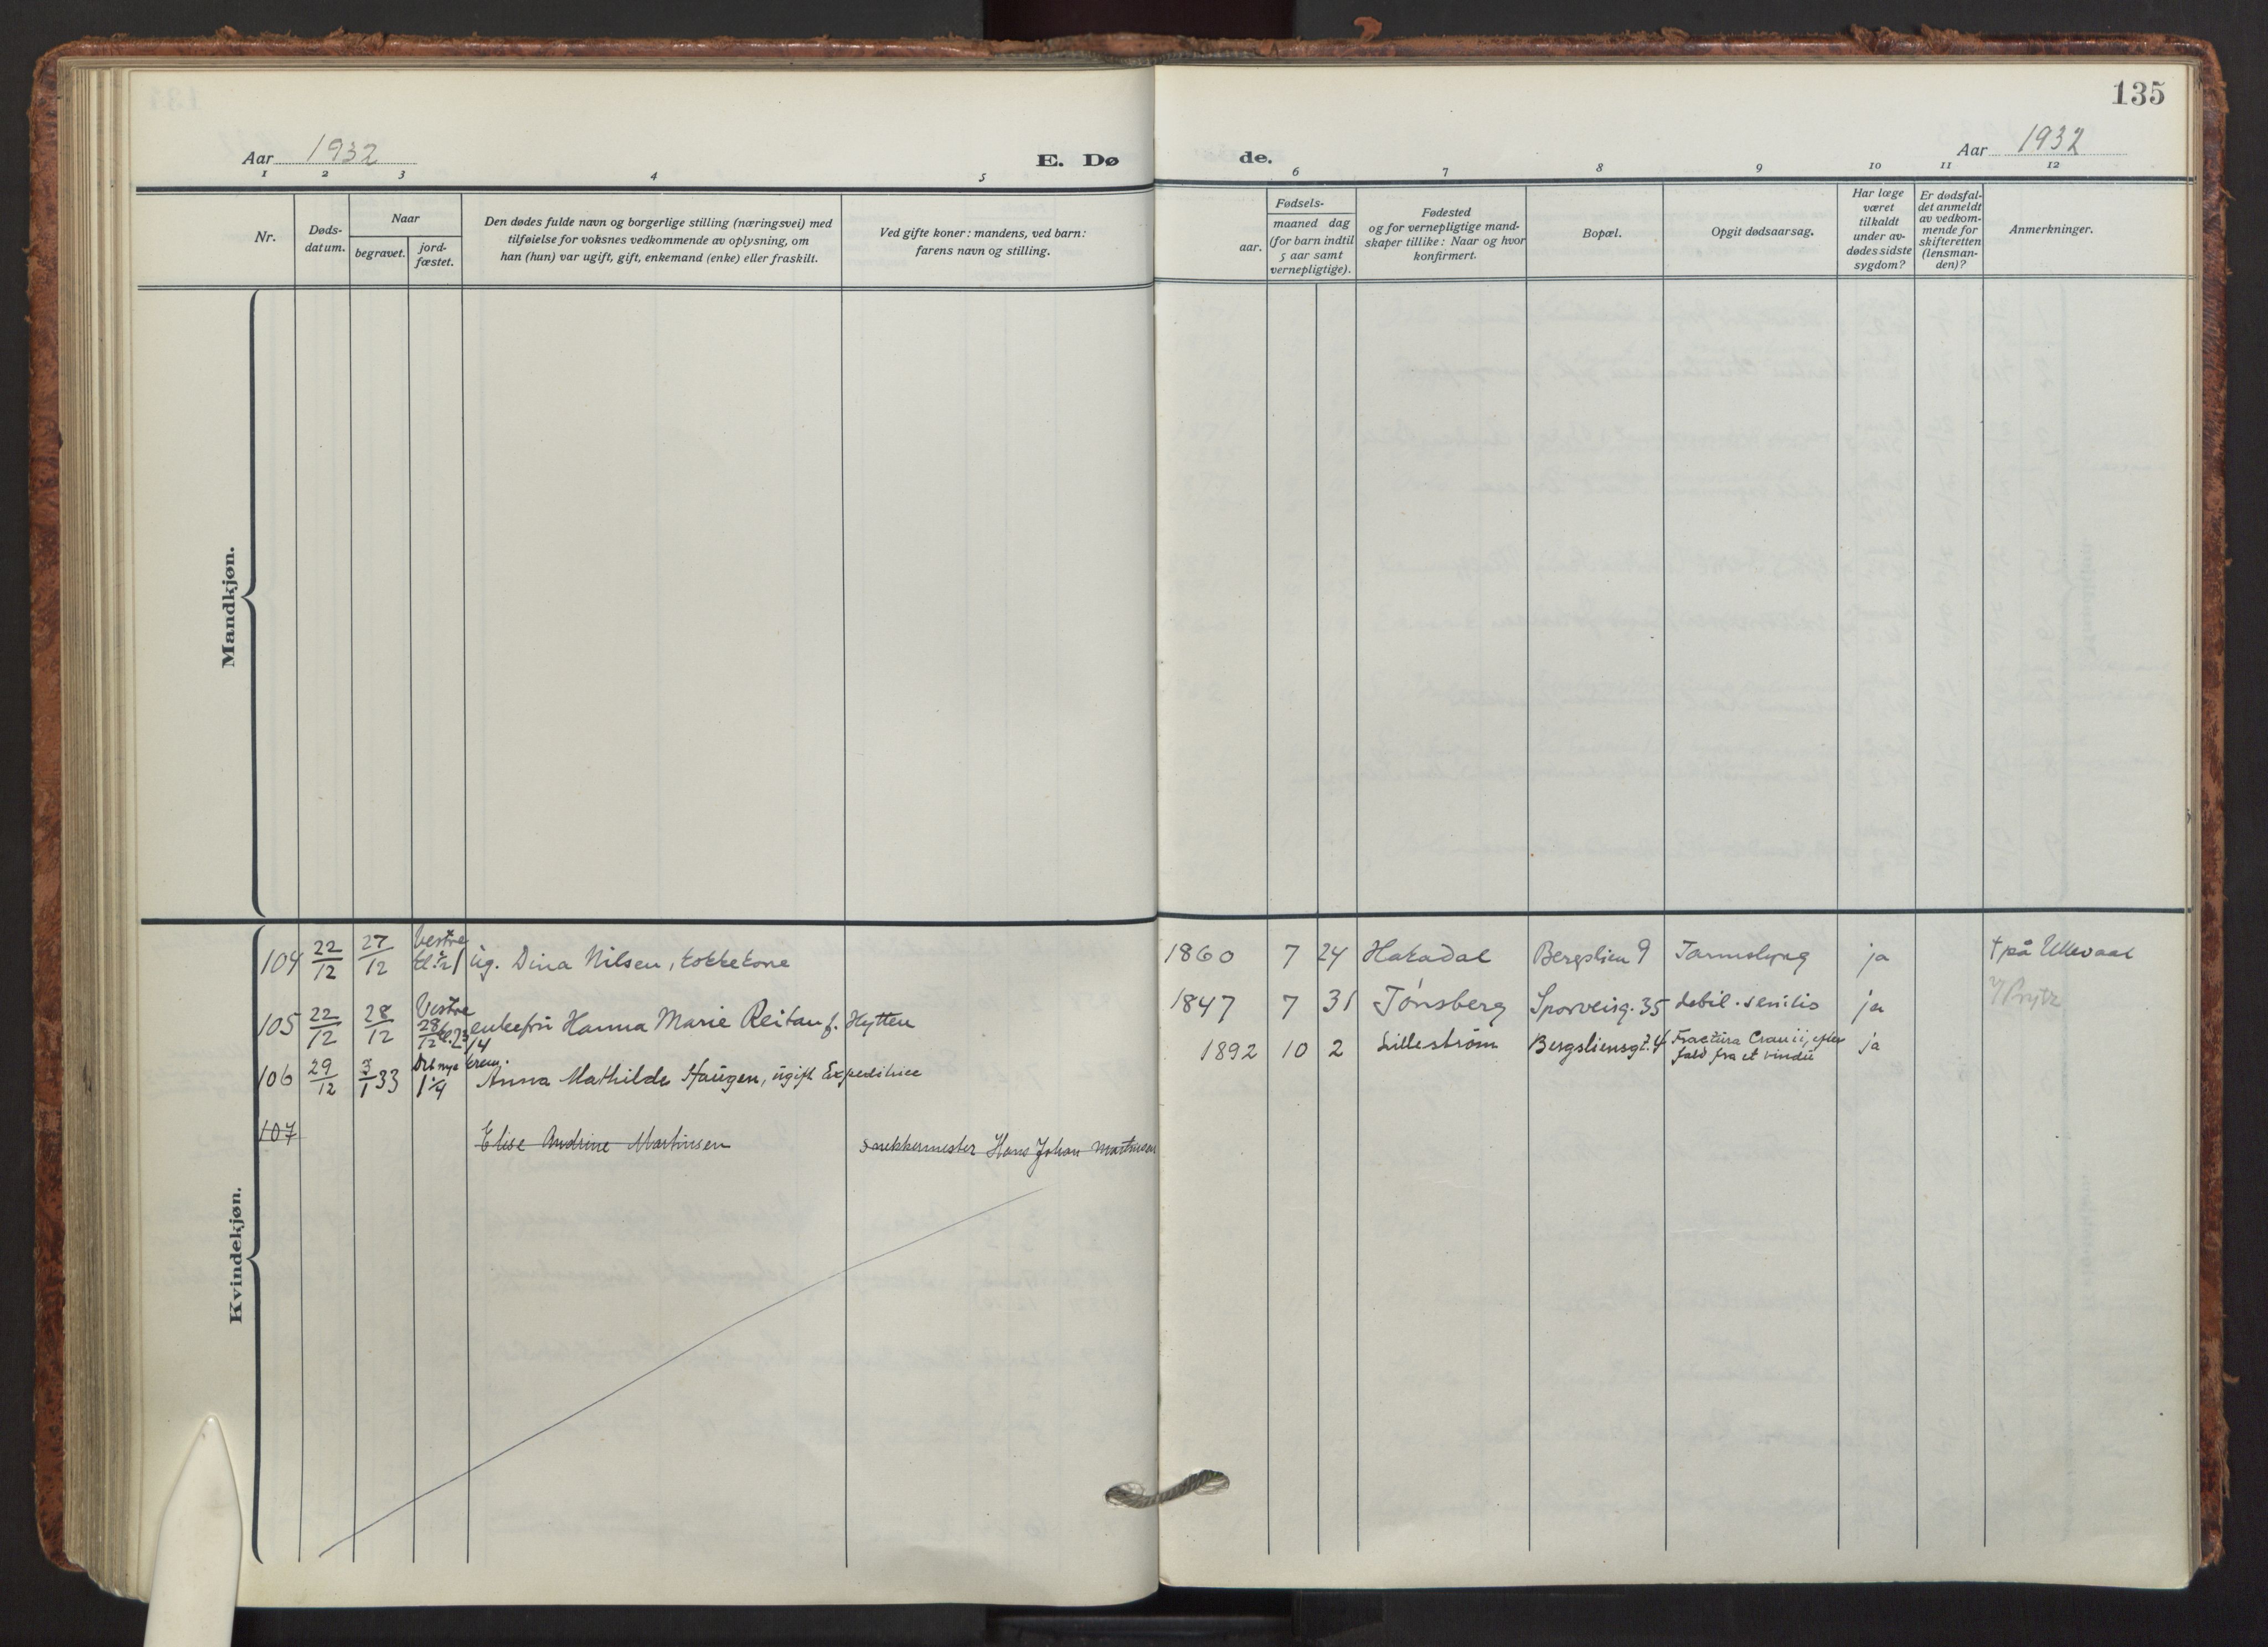 135
Aar 1932
E. Dø
de.
Aar 1932
1 2 3 4 5
6 7 8 9 10 11 12
Nr.
Døds-
datum.
Naar
begravet.
jord-
fæstet.
Den dødes fulde navn og borgerlige stilling (næringsvei) med
tilføielse for voksnes vedkommende av oplysning, om
han (hun) var ugift, gift, enkemand (enke) eller fraskilt.
Ved gifte koner: mandens, ved barn:
farens navn og stilling.
aar.
Fødsels-
maaned dag
(for barn indtil
5 aar samt
vernepligtige).
Fødested
og for vernepligtige mand-
skaper tillike: Naar og hvor
konfirmert.
Bopæl.
Opgit dødsaarsag.
Har læge
været
tilkaldt
under av-
dødes sidste
sygdom?
Er dødsfal-
det anmeldt
av vedkom-
mende for
skifteretten
(lensman-
den)?
Anmerkninger.
Mandkjøn.
Kvindekjøn.
104 22/12 27/12 Vestre kl. 1/2 1 ug. Dina Nilsen, kokkekone 1860 7 24 Hakadal Bergslien 9 Tarmslyng ja † på Ullevaal
105 22/12 28/12 Vestre 28/12 enkefru Hanna Marie Reitan f. Hytten 1847 7 31 Tønsberg Sporveisg. 35 debil. senilis ja
106 29/12 3/1 33 Det nye krem. Anna Mathilde Haugen, ugift Expeditrice 1892 10 2 Lillestrøm Bergsliensgt. 4 Fractura Cranii, efter
fald fra et vindu ja
107 Elise Andrine Martinsen snekkermester Hans Johan Martinsen